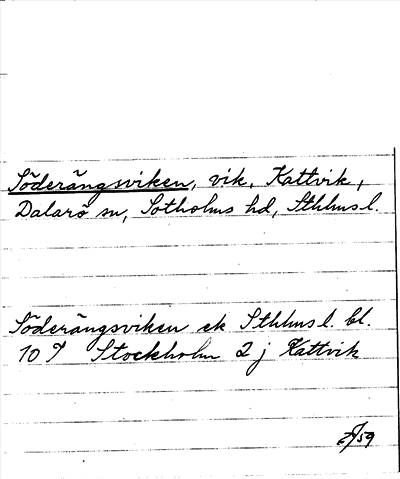 Söderängsviken, vik, Kattvik,
Dalarö sn, Sotholms hd, Sthlms l.
Söderängsviken ek Sthlms l. bl.
109 Stockholm 2 j Kattvik
59